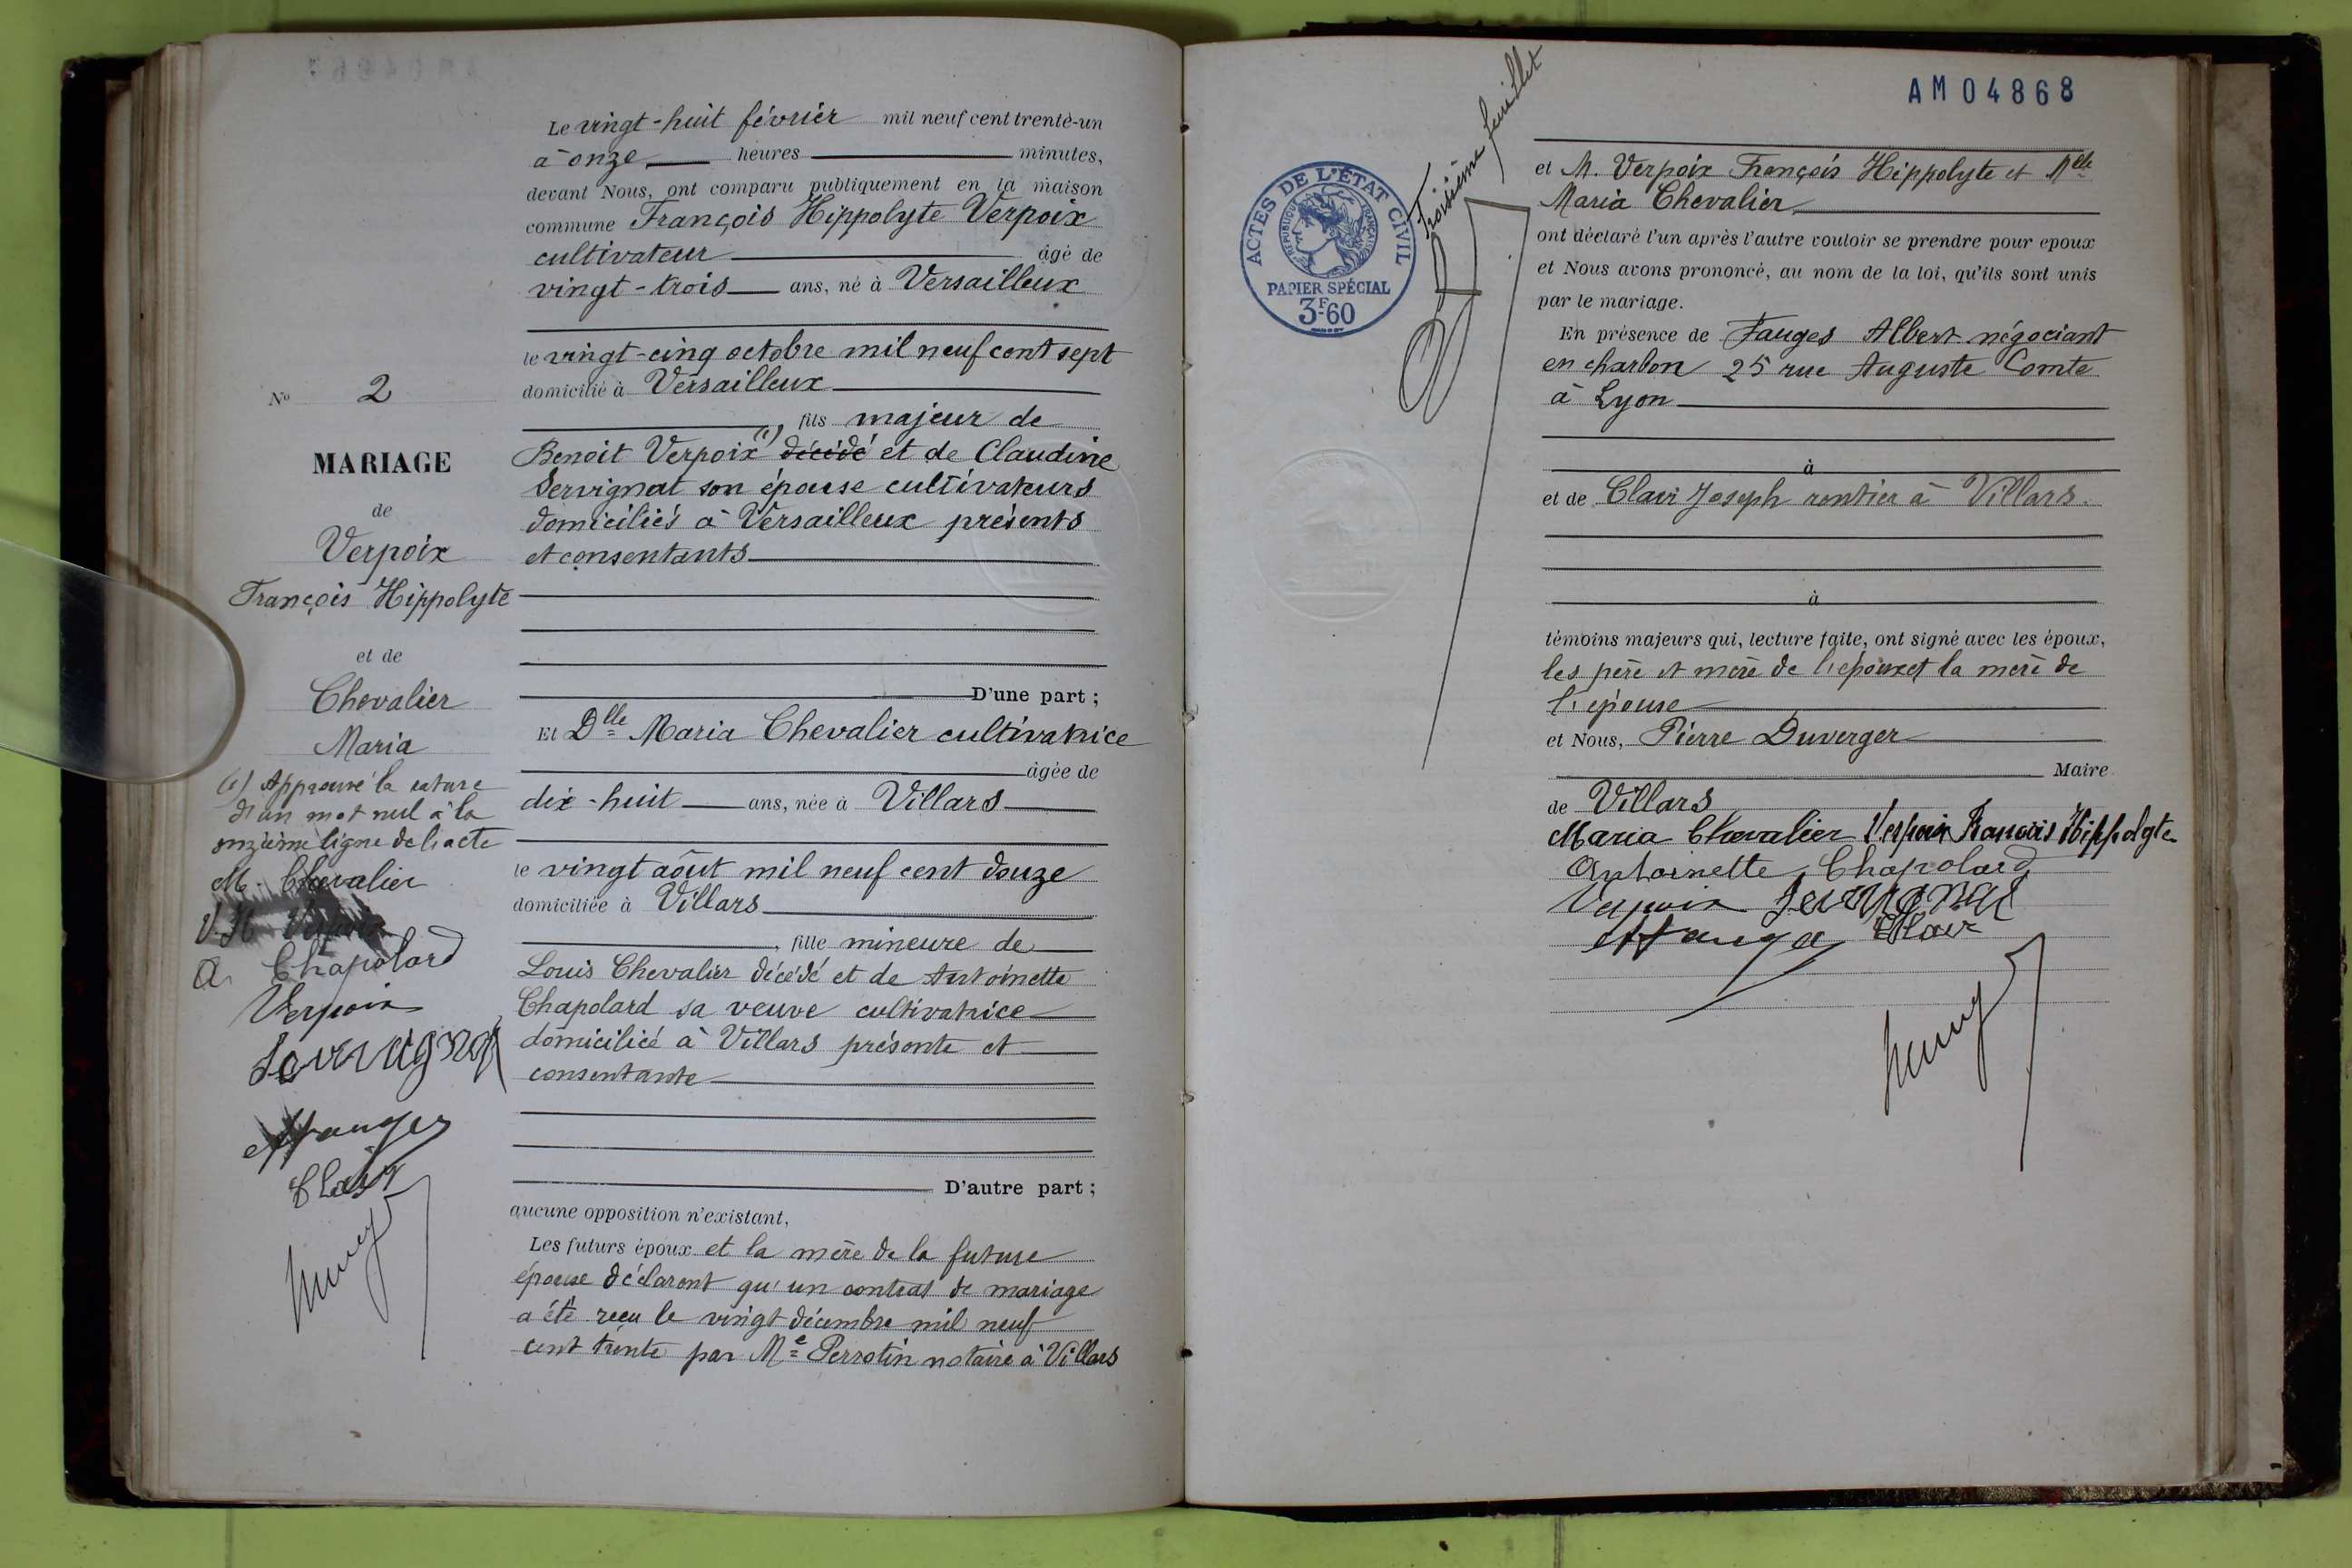 Le vingt-huit février mil neuf cent trente-un
à onze heures minutes,
devant Nous, ont comparu publiquement en la maison
commune François Hippolyte Verpoix
cultivateur âgé de
vingt-trois ans, né à Versailleux
le vingt-cinq octobre mil neuf cent sept
domicilié à Versailleux
, fils majeur de
Benoit Verpoix (1) décédé et de Claudine
Servignat son épouse cultivateurs
domiciliés à Versailleux présents
et consentants
D'une part ;
Et Dlle Maria Chevalier cultivatrice
âgée de
dix-huit ans, née à Villars
le vingt août mil neuf cent douze
domiciliée à Villars
, fille mineure de
Louis Chevalier décédé et de Antoinette
Chapolard sa veuve cultivatrice
domiciliée à Villars présente et
consentante
D'autre part ;
aucune opposition n'existant,
Les futurs époux et la mère de la future
épouse déclarent qu'un contrat de mariage
a été reçu le vingt décembre mil neuf
cent trente par Me Perrotin notaire à Villars
No 2
MARIAGE
de
Verpoix
François Hippolyte
et de
Chevalier
Maria
(1) Approuvé la rature
d'un mot nul à la
onzième ligne de l'acte
M. Chevalier
A. Chapolard
Verpoix
Servignat
Troisième feuillet
ACTES DE L'ÉTAT CIVIL
RÉPUBLIQUE FRANÇAISE
PAPIER SPÉCIAL
3F60
AM04868
et M. Verpoix François Hippolyte et Melle
Maria Chevalier
ont déclaré l'un après l'autre vouloir se prendre pour époux
et Nous avons prononcé, au nom de la loi, qu'ils sont unis
par le mariage.
En présence de Fauges Albert négociant
en charbon 25 rue Auguste Comte
à Lyon
à
et de Clair Joseph rentier à Villars.
à
témoins majeurs qui, lecture faite, ont signé avec les époux,
les père et mère de l'époux et la mère de
l'épouse
et Nous, Pierre Duverger
Maire
de Villars
Maria Chevalier Verpoix François Hippolyte
Antoinette Chapolard
Verpoix Servignat
Clair